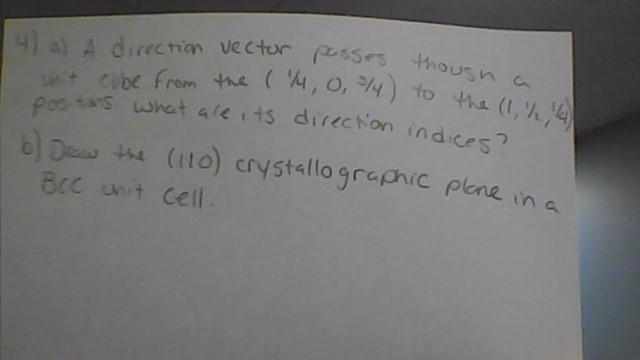 4) a) A direction vector passes though a
unit cube from the ( 1/4, 0, 3/4) to the (1, 1/2, 1/4)
positions. What are its direction indices?
b) Draw the (110) crystallographic plane in a
BCC unit cell.